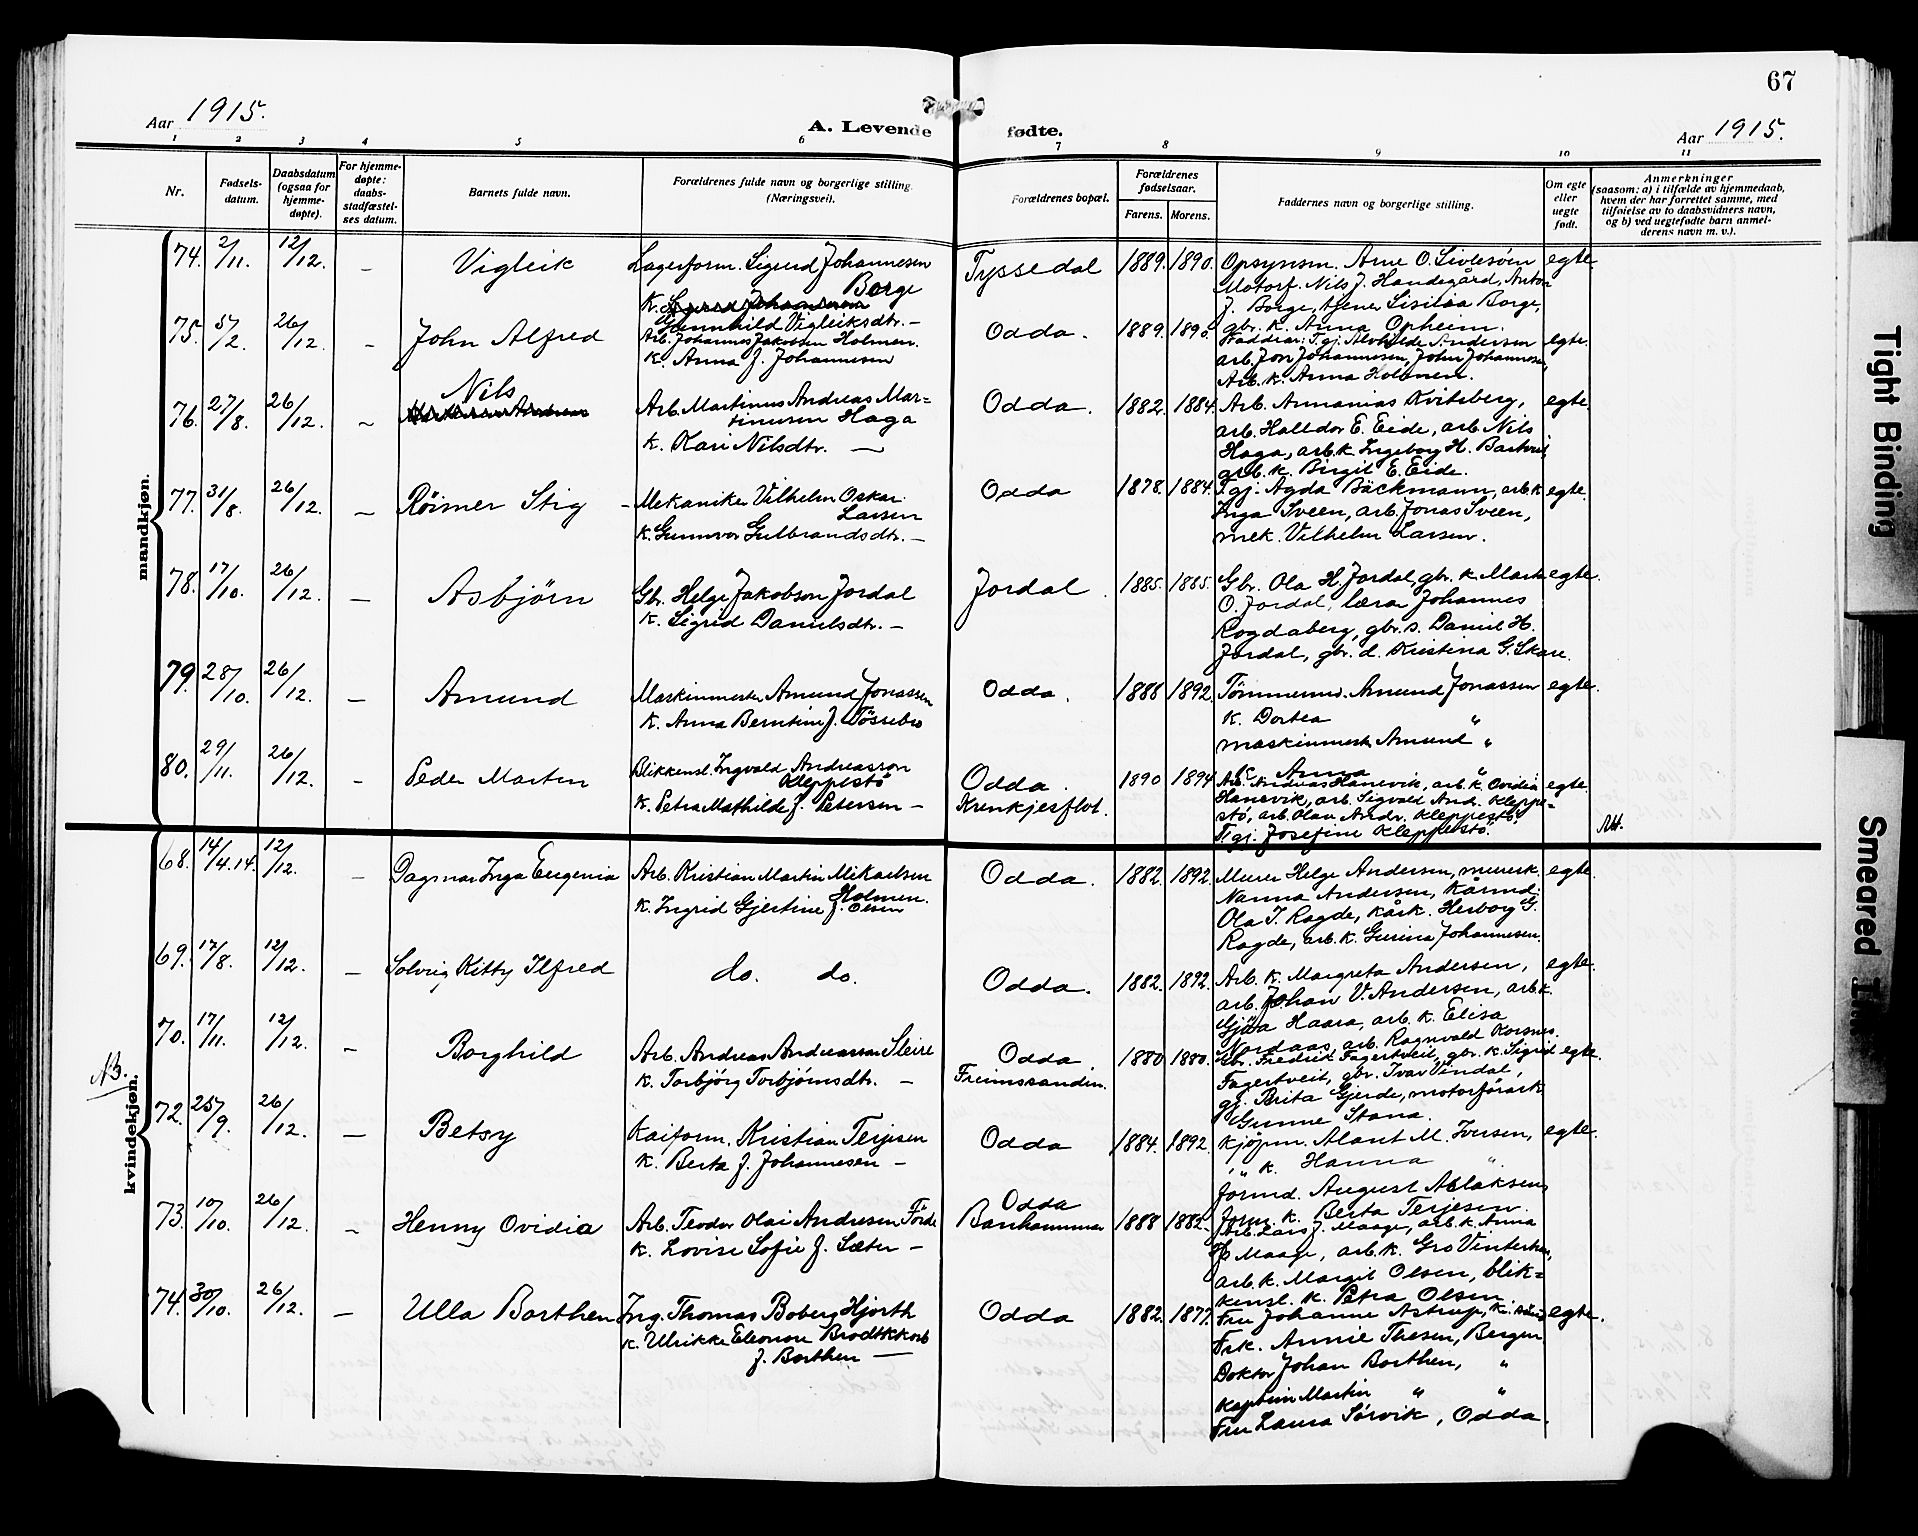 67
Aar 1915.
A. Levende fødte.
Aar 1915.
1 2 3 4 5 6 7 8 9 10 11
Nr.
Fødsels-
datum.
Daabsdatum
(ogsaa for
hjemme-
døpte).
For hjemme-
døpte:
daabs-
stadfæstel-
ses datum.
Barnets fulde navn.
Forældrenes fulde navn og borgerlige stilling.
(Næringsvei).
Forældrenes bopæl.
Forældrenes
fødselsaar.
Farens. Morens.
Faddernes navn og borgerlige stilling.
Om egte
eller
uegte
født.
Anmerkninger
(saasom: a) i tilfælde av hjemmedaab,
hvem der har forrettet samme, med
tilføielse av to daabsvidners navn,
og b) ved uegtefødte barn anmel-
derens navn m. v.).
mandkjøn.
74. 2/11. 12/12. – Vigleik
Lagerform. Sigurd Johannesen
Borge
k.
Gunnhild Vigleiksdtr. –
Tyssedal 1889. 1890.
Opsynsm. Arne O.
Motorf. Nils J. Handegård, Anton
J. Borge, tjener Borge,
gbr. k. Anna Opheim.
egte.
75. 5/2. 26/12. – John Alfred
Arb. Johannes Jakobsen Holmen.
k. Anna J. Johannesen
Odda. 1889. 1890.
Faddrar: T.gj. Alvhilde Andersen
arb. Jon Johannesen, John Johannesen,
Arb. k. Anna Holmen.
egte.
76. 27/8. 26/12. – Nils
Arb. Martinus Andreas Mar=
tinusen Haga
k. Kari Nilsdtr. —
Odda. 1882. 1884.
Arb. Annanias Kvitaberg,
arb. Halldor E. Eide, arb. Nils
Haga, arb. k. Ingeborg H.
gbr. k. Birgit E. Eide.
egte.
77. 31/8. 26/12. – Røimer Stig
Mekaniker Vilhelm Oskar
Larsen
k. Gunvor Gulbrandsdtr. –
Odda 1878. 1884.
T.gj. Agda Bäckmann, arb. k.
Inga Sveen, arb. Jonas Sveen,
mek. Vilhelm Larsen.
egte.
78. 17/10. 26/12. – Asbjørn
Gbr. Helge Jakobson Jordal
k. Sigrid Danielsdtr. –
Jordal. 1885. 1885.
Gbr. Ola H. Jordal, gbr. k. Marta
O. Jordal, lærar Johannes
Rogdaberg, gbr. s. Daniel H.
Jordal, gbr. d. Kristina G. Skare.
egte.
79. 28/10. 26/12. – Amund
Maskinmester Amund Jonassen
k. Anna Berntine J. Tøssebro
Odda. 1886 1892.
Tømmermd. Amund Jonassen
k. Dortea "
maskinmestr. Amund "
k. Anna "
egte.
80. 29/11. 26/12. – Peder Martin
Blikkensl. Ingvald Andreasson
Kleppestø
k. Petra Mathilde J. Petersen –
Odda.
Krenkjesflot.
1890 1894
Arb. Andreas Hanevik, arb. k. Ovidia
Hanevik, arb. Sigvald Andr. Kleppe=
stø, arb. Olav Andr. Kleppestø,
T.gj. Josefine Kleppestø.
egte.
kvindekjøn.
68. 14/4.14. 12/12. – Dagmar Inga Eugenia
Arb. Kristian Martin Mikaelsen
Holmen.
k. Ingrid Gjertine J. Olsen
Odda. 1882. 1892.
Murer Helge Andersen, murerk.
Nanna Andersen, kårmd.
Ola T. Ragde, kårk. Herborg G.
Ragde, arb. k. Gurina Johannesen.
egte.
69. 17/8. 12/12. – Solveig Kitty Ilfred
do. do.
Odda. 1882. 1892.
Arb. k. Margreta Andersen,
arb. Johan V. Andersen, arb. k.
Gjøa Haara, arb. k. Elisa
Nordaas, arb. Ragnvald Korsnes.
egte.
70. 17/11. 12/12. – Borghild
Arb. Andreas Andreassen Sleire
k. Torbjørg Torbjørnsdtr. –
Odda
Freimssandin.
1880 1880.
Gbr. Fredrid Fagertveit, gbr. k. Sigrid
Fagertveit, gbr. Ivar Vindal,
gj. Brita Gjerde, motorførark.
Gunne Stana.
egte.
NB.
72. 25/9. 26/12. – Betsy
Kaiform. Kristian Terjesen
k. Berta J. Johannesen –
Odda 1884. 1892.
Kjøpm. M. Iversen,
" k. Hanna "
Førmd. August Aslaksen,
Form. k. Berta Terjesen.
egte.
73. 10/10. 26/12. – Henny Ovidia
Arb. Teodor Olai Andresen Førde
k. Lovise Sofie J. Sæter –
Odda
Banhammar
1888 1882.
Arb. Lars J. Maage, arb. k. Anna
H. Maage, arb. k. Gro
arb. k. Margit Olsen, blik=
kensl. k. Petra Olsen
74. 30/10. 26/12. – Ulla Borthen
Ing. Thomas Boberg Hjorth
k. Ulrikke Eleonore Brodtkorb
J. Borthen —
Odda 1882. 1877.
Fru Johanne Astrup,
Frk. Annie Thesen, Bergen
Doktor Johan Borthen, "
Kaptein Martin " "
Fru Laura Sørvik, Odda.
egte.
Tight Binding
Smeared